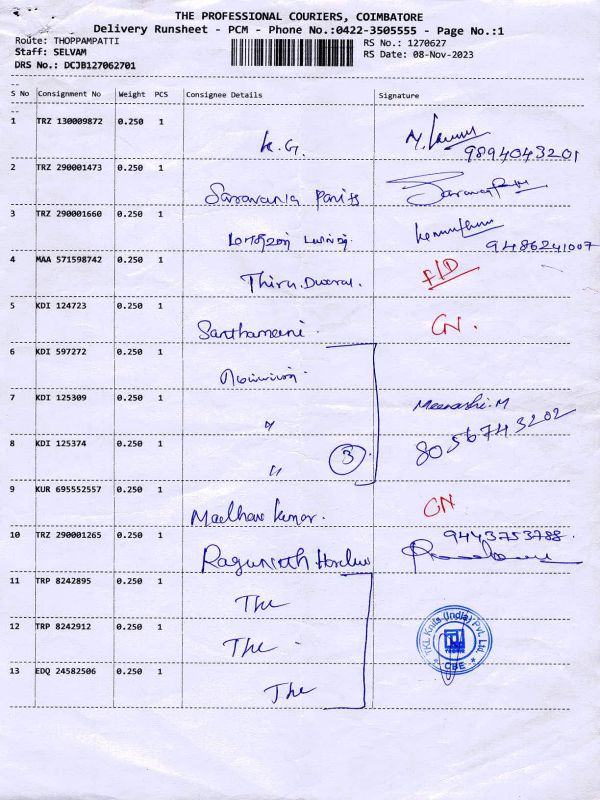 THE PROFESSIONAL COURIERS, COIMBATORE
Delivery Runsheet - PCM - Phone No.:0422-3505555 - Page No.:1
Route: THOPPAMPATTI
RS No.: 1270627
Staff: SELVAM
RS Date: 08-Nov-2023
DRS No.: DCJB127062701
S No Consignment No Weight PCS Consignee Details Signature
1 TRZ 130009872 0.250 1 K.G.
9894043201
2 TRZ 290001473 0.250 1
3 TRZ 290001660 0.250 1
9486241007
4 MAA 571598742 0.250 1 Thiru. F/D
5 KDI 124723 0.250 1 CN.
6 KDI 597272 0.250 1
7 KDI 125309 0.250 1 " Meenashi.M
8056743202
8 KDI 125374 0.250 1 " 3
9 KUR 695552557 0.250 1 Madhav kumar. CN
10 TRZ 290001265 0.250 1 9443753788.
11 TRP 8242895 0.250 1 The
12 TRP 8242912 0.250 1 The - TKL Knits (India) Pvt. Ltd. CBE
13 EDQ 24582506 0.250 1 The